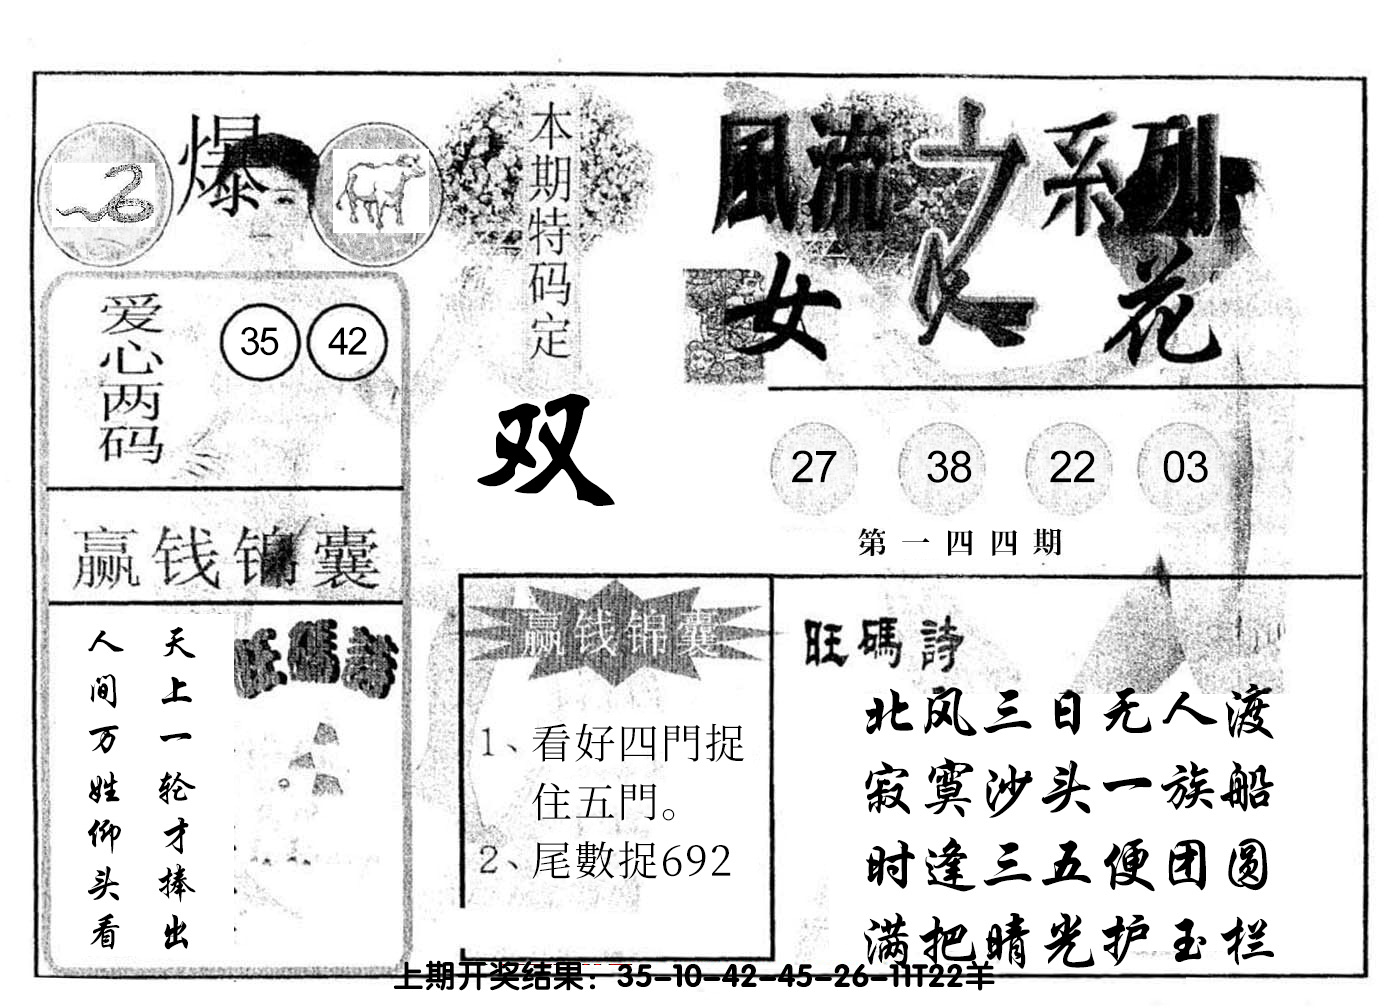 爆
爱心两码
35 42
赢钱锦囊
天上一轮才捧出
人间万姓仰头看
旺碼詩
本期特码定
双
風流之系列
女人花
27 38 22 03
第一四四期
赢钱锦囊
1、看好四門捉
住五門。
2、尾數捉692
旺碼詩
北风三日无人渡
寂寞沙头一族船
时逢三五便团圆
满把晴光护玉栏
上期开奖结果：35-10-42-45-26-11T22羊